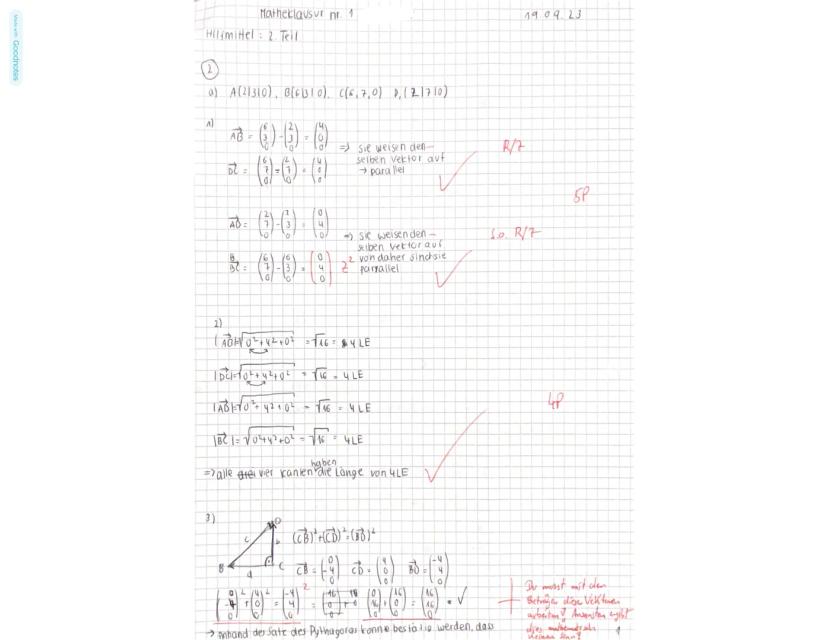 Made with Goodnotes
Matheklausur nr. 1 19.09.23
Hilfmittel: 2. Teil
2
a) A(2|3|0), B(6|3|0), C(6,7,0) D,(2|7|0)
1)
AB = (6 3 0) - (2 3 0) = (4 0 0)
⇒ sie weisen den-
selben Vektor auf
→ parallel
R/Z
DC = (6 7 0) - (2 7 0) = (4 0 0)
5P
AD = (2 7 0) - (2 3 0) = (0 4 0)
⇒ sie weisen den-
selben Vektor auf
von daher sind sie
parrallel
s.o. R/Z
BC = (6 7 0) - (6 3 0) = (0 4 0) Z²
2)
|AD|=√0²+4²+0² = √16 = 4 LE
|DC|=√0²+4²+0² = √16 = 4 LE
|AB|=√0²+4²+0² = √16 = 4 LE
4P
|BC|=√0²+4²+0² = √16 = 4 LE
⇒ alle vier kanten haben die Länge von 4 LE
3)
D c b B d C
(CB)²+(CD)²=(BD)²
CB = (0 -4 0) CD = (4 0 0) BD = (-4 4 0)
(0 -4 0)² + (4 0 0)² = (-4 4 0)² = (0 16 0) + (16 0 0) = (16 16 0) = ✓
Du musst mit den
Beträgen der Vektoren
arbeiten! Ansonsten ergibt
dies mathematisch
keinen Sinn!
→ anhand der Satz des Pythagoras konne bestätig werden, dass